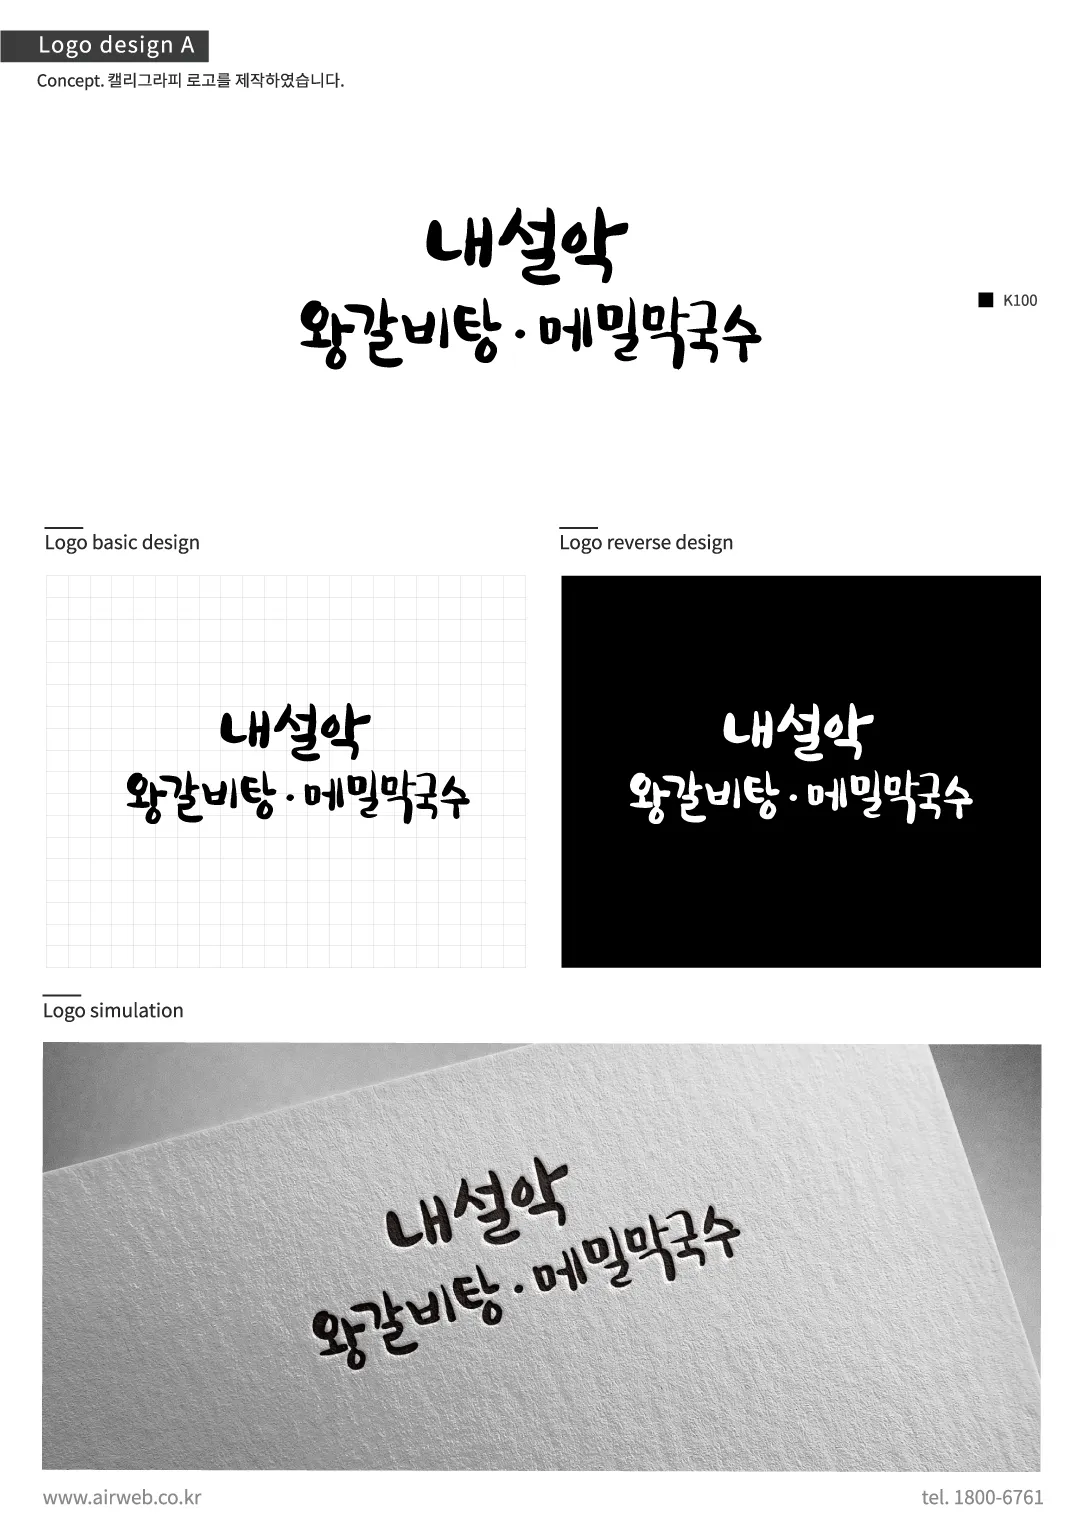 Logo design A
Concept. 캘리그라피 로고를 제작하였습니다.
내설악
왕갈비탕 · 메밀막국수
K100
Logo basic design
내설악
왕갈비탕 · 메밀막국수
Logo reverse design
내설악
왕갈비탕 · 메밀막국수
Logo simulation
내설악
왕갈비탕 · 메밀막국수
www.airweb.co.kr
tel. 1800-6761